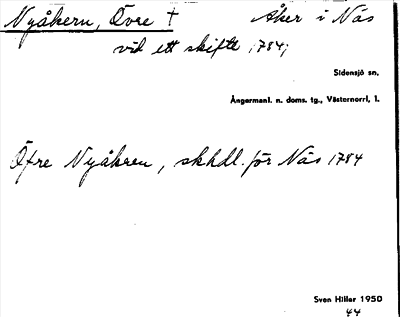 Nyåkern, Övre † Åker i Näs
vid ett skifte 1784;
Sidensjö sn.
Ångermanl. n. doms. tg., Västernorrl. l.
Öfre Nyåkren, skhdl. för Näs 1784
Sven Hiller 1950
44